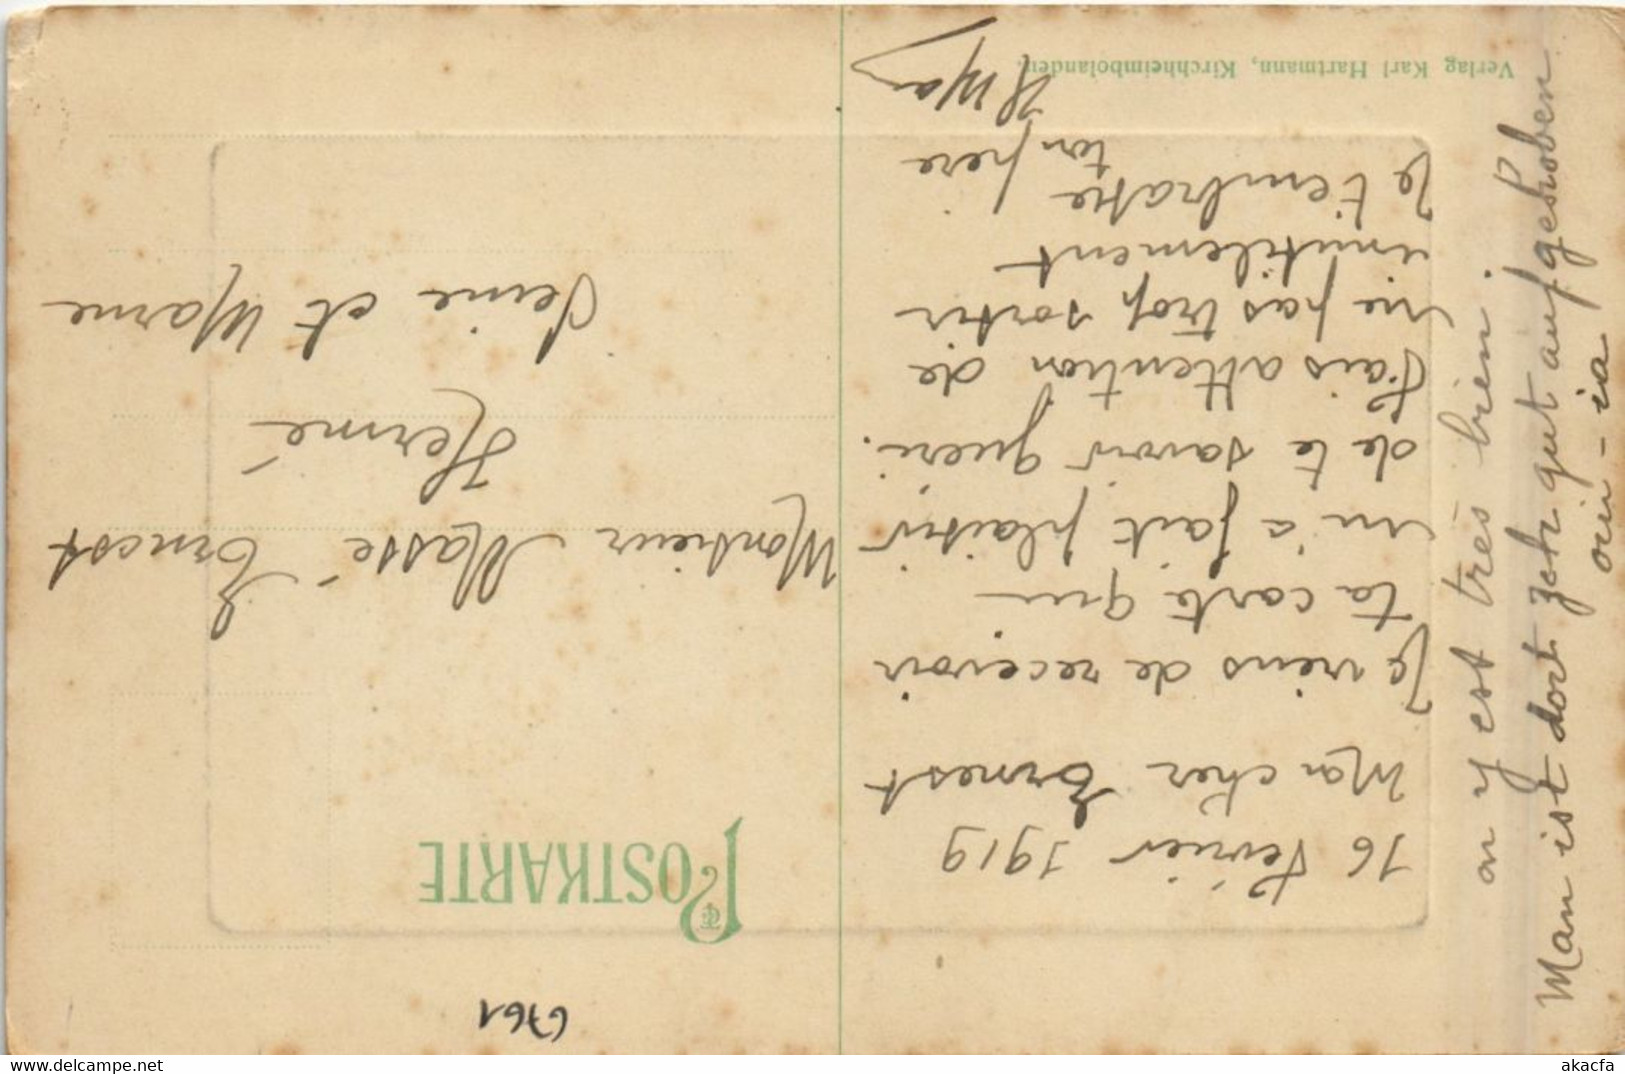 6761
POSTKARTE
16 Février 1919
Mon cher Ernest
Je viens de recevoir
ta carte qui
m'a fait plaisir
de te savoir gueri.
Fais attention de
ne pas trop sortir
inutilement
Je t'embrasse
ton père
Monsieur Massé Ernest
Hermé
Seine et Marne
Verlag Karl Hartmann, Kirchheimbolanden.
on y est très bien.
Man ist dort zehr gut aufgeshoben
oui - ia
http://www.delcampe.net
akacfa